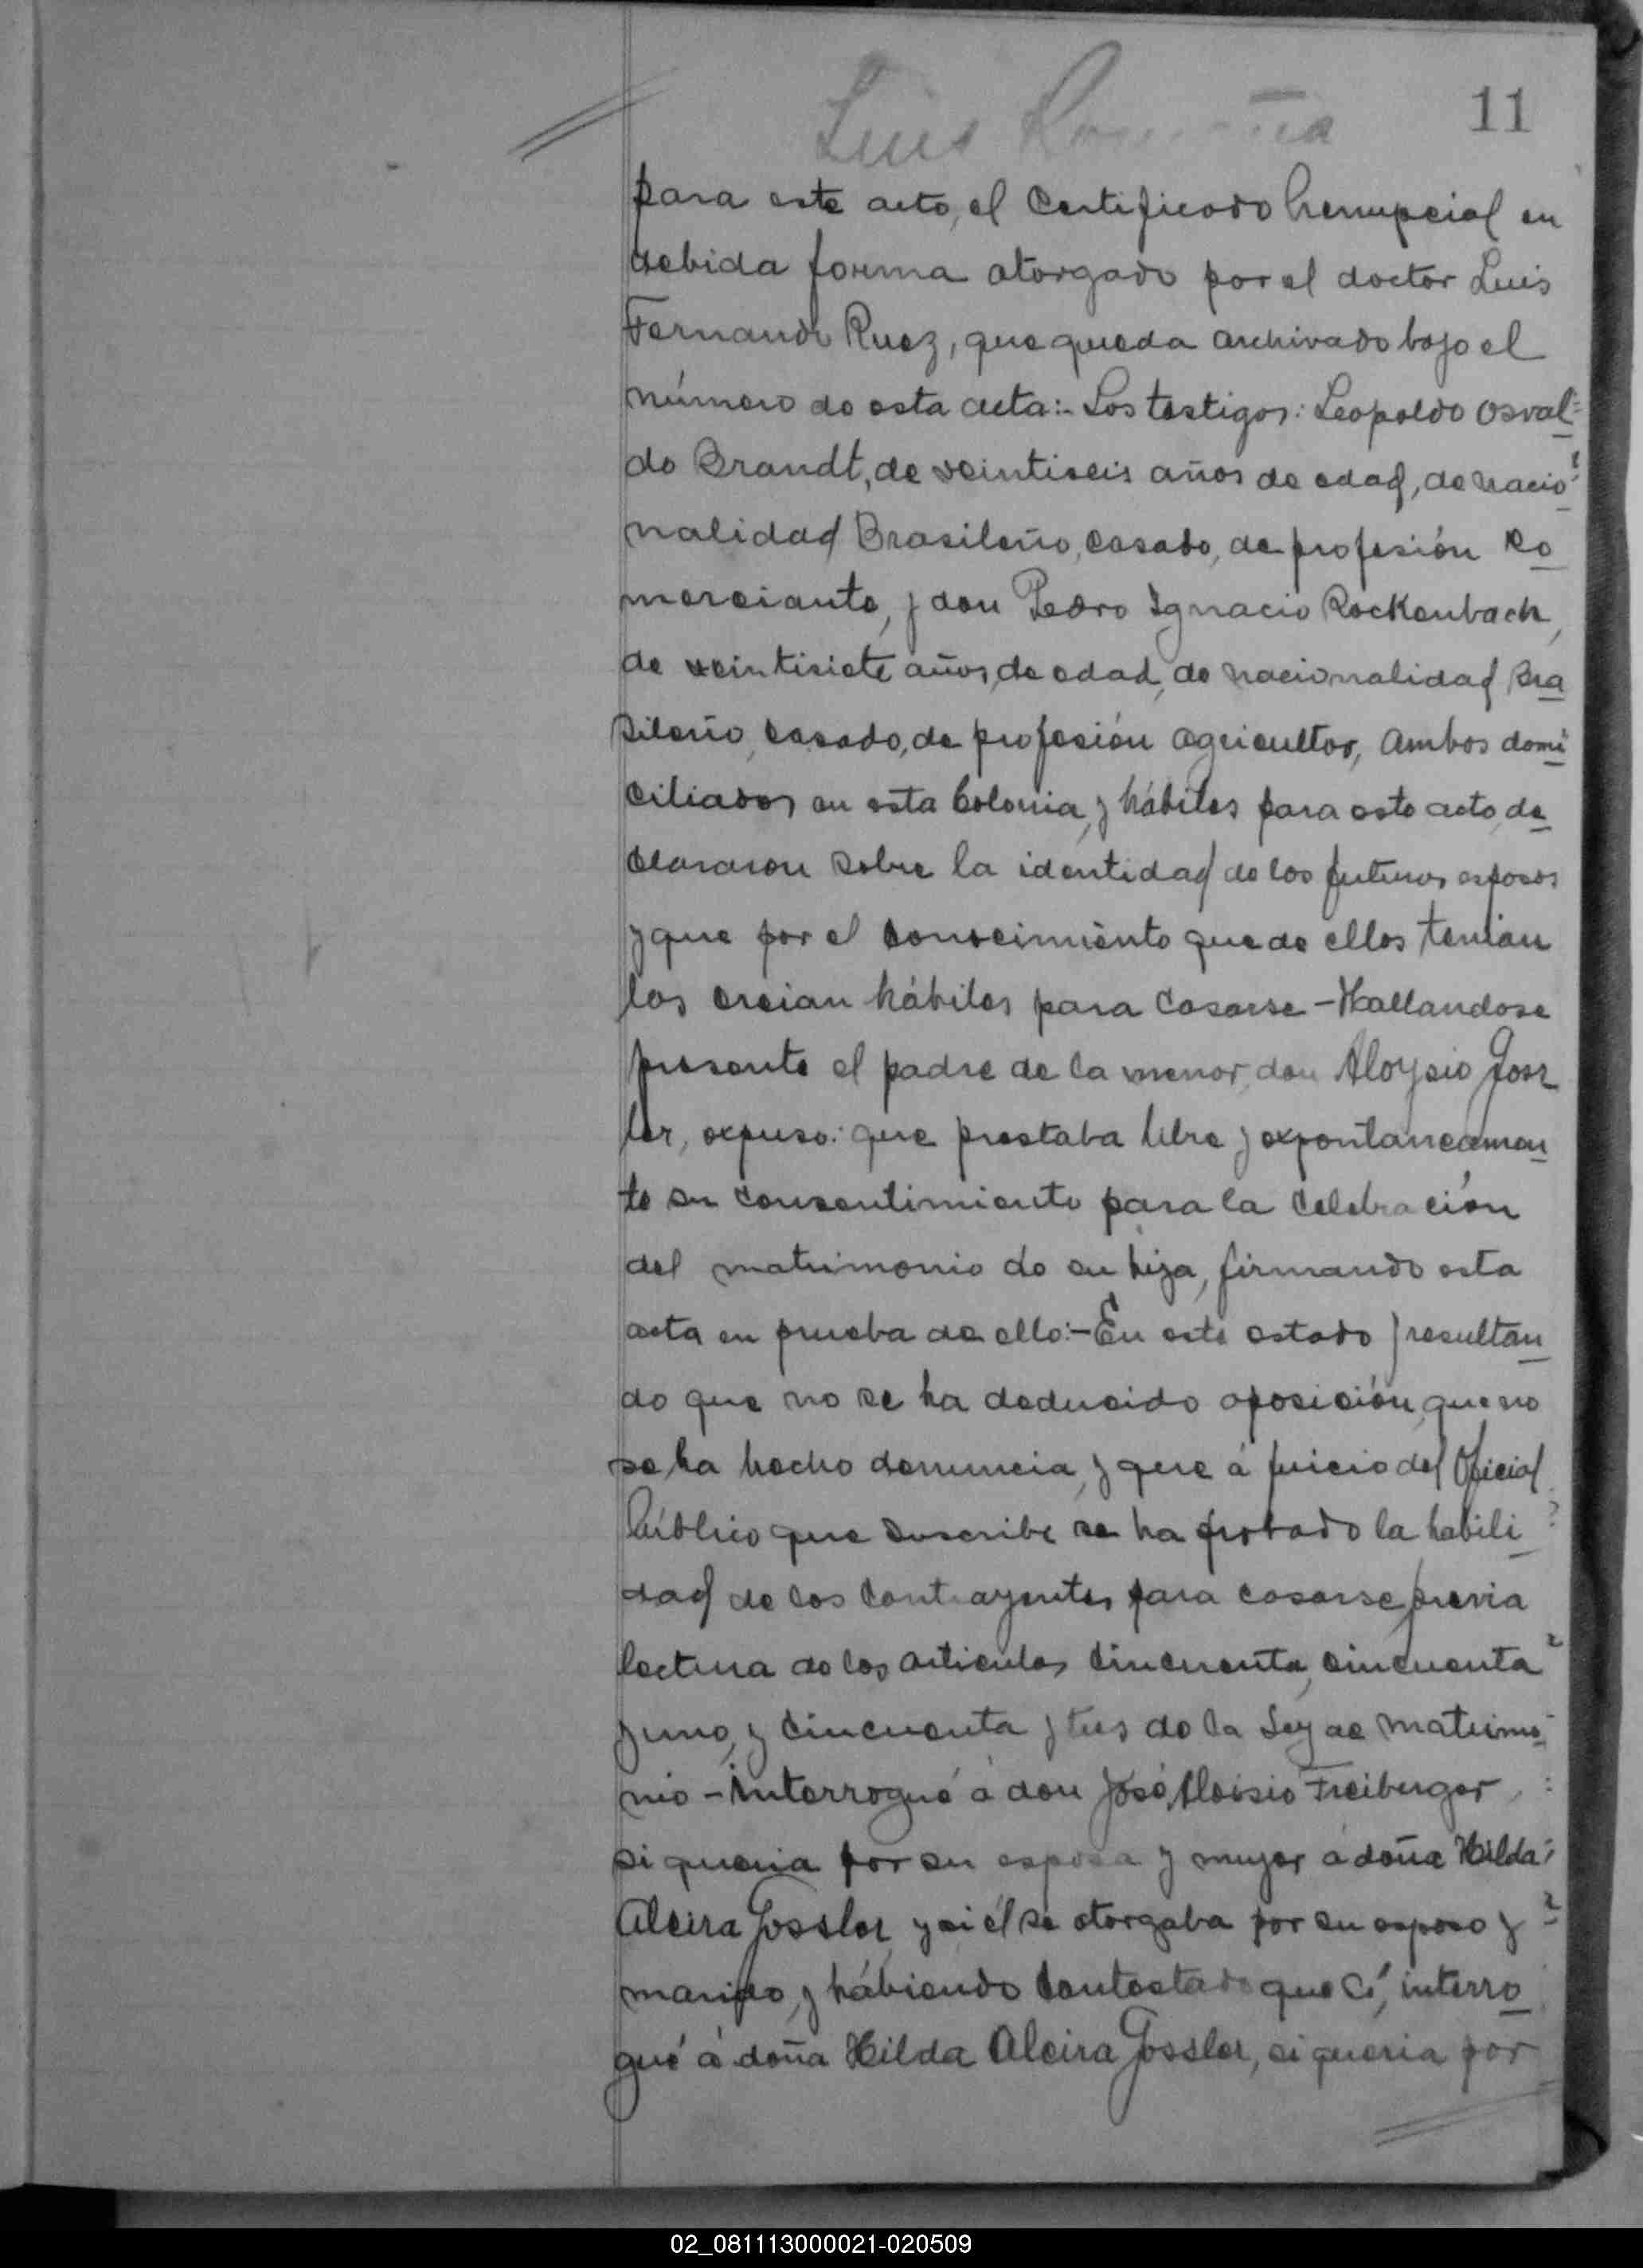 11
Luis
para este acto, el Certificado Prenupcial en
debida forma otorgado por el doctor Luis
Fernando Ruez, que queda archivado bajo el
número de esta acta:- Los testigos: Leopoldo Osval=
do Brandt, de veintiseis años de edad, de nacio
nalidad Brasileño, casado, de profesión co
merciante, y don Pedro Ignacio Rockenbach,
de veintisiete años, de edad, de nacionalidad Bra
sileño, casado, de profesión agricultor, ambos domi
ciliados en esta Colonia, y hábiles para este acto, de
clararon sobre la identidad de los futuros esposos
y que por el conocimiento que de ellos tenian
los creian hábiles para casarse - Hallandose
presente el padre de la menor, don Aloysio Goss
ler, expuso: que prestaba libre y expontaneamen
te su consentimiento para la celebración
del matrimonio de su hija, firmando esta
acta en prueba de ello:- En este estado y resultan
do que no se ha deducido oposición, que no
se ha hecho denuncia, y que á juicio del Oficial
Público que suscribe se ha probado la habili
dad de los contrayentes para casarse, previa
lectura de los articulos cincuenta, cincuenta
y uno, y cincuenta y tres de la Ley de matrimo
nio - interrogué á don José Aloisio Freiberger,
si queria por su esposa y mujer á doña Hilda
Alcira Gossler, y si él se otorgaba por su esposo y
marido, y hábiendo contestado que Cí, interro
gué á doña Hilda Alcira Gossler, si queria por
02_081113000021-020509